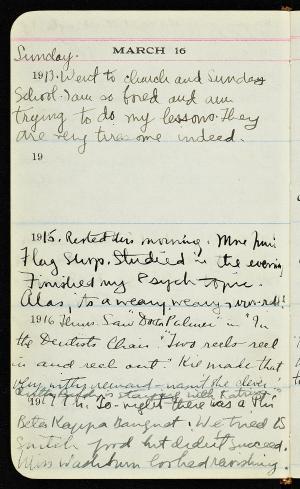 MARCH 16
Sunday.
1913. Went to church and Sunday
School. I am so bored and am
trying to do my lessons. They
are very tiresome indeed.
19
1915. Rested this morning.
Flag Shop. Studied in the evening
Finished my Psych topic.
Alas, 'tis a weary, weary
1916 Thurs. Saw "Doc Palmer" in "In
the Dentists Chair." "Two reels - reel
in and reel out." Kie made that
very witty remark - isn't she clever.
1917 Fri. To-night there was a Phi
Beta Kappa Banquet. We tried to
snitch food but didn't succeed.
Miss Washburn looked ravishing.